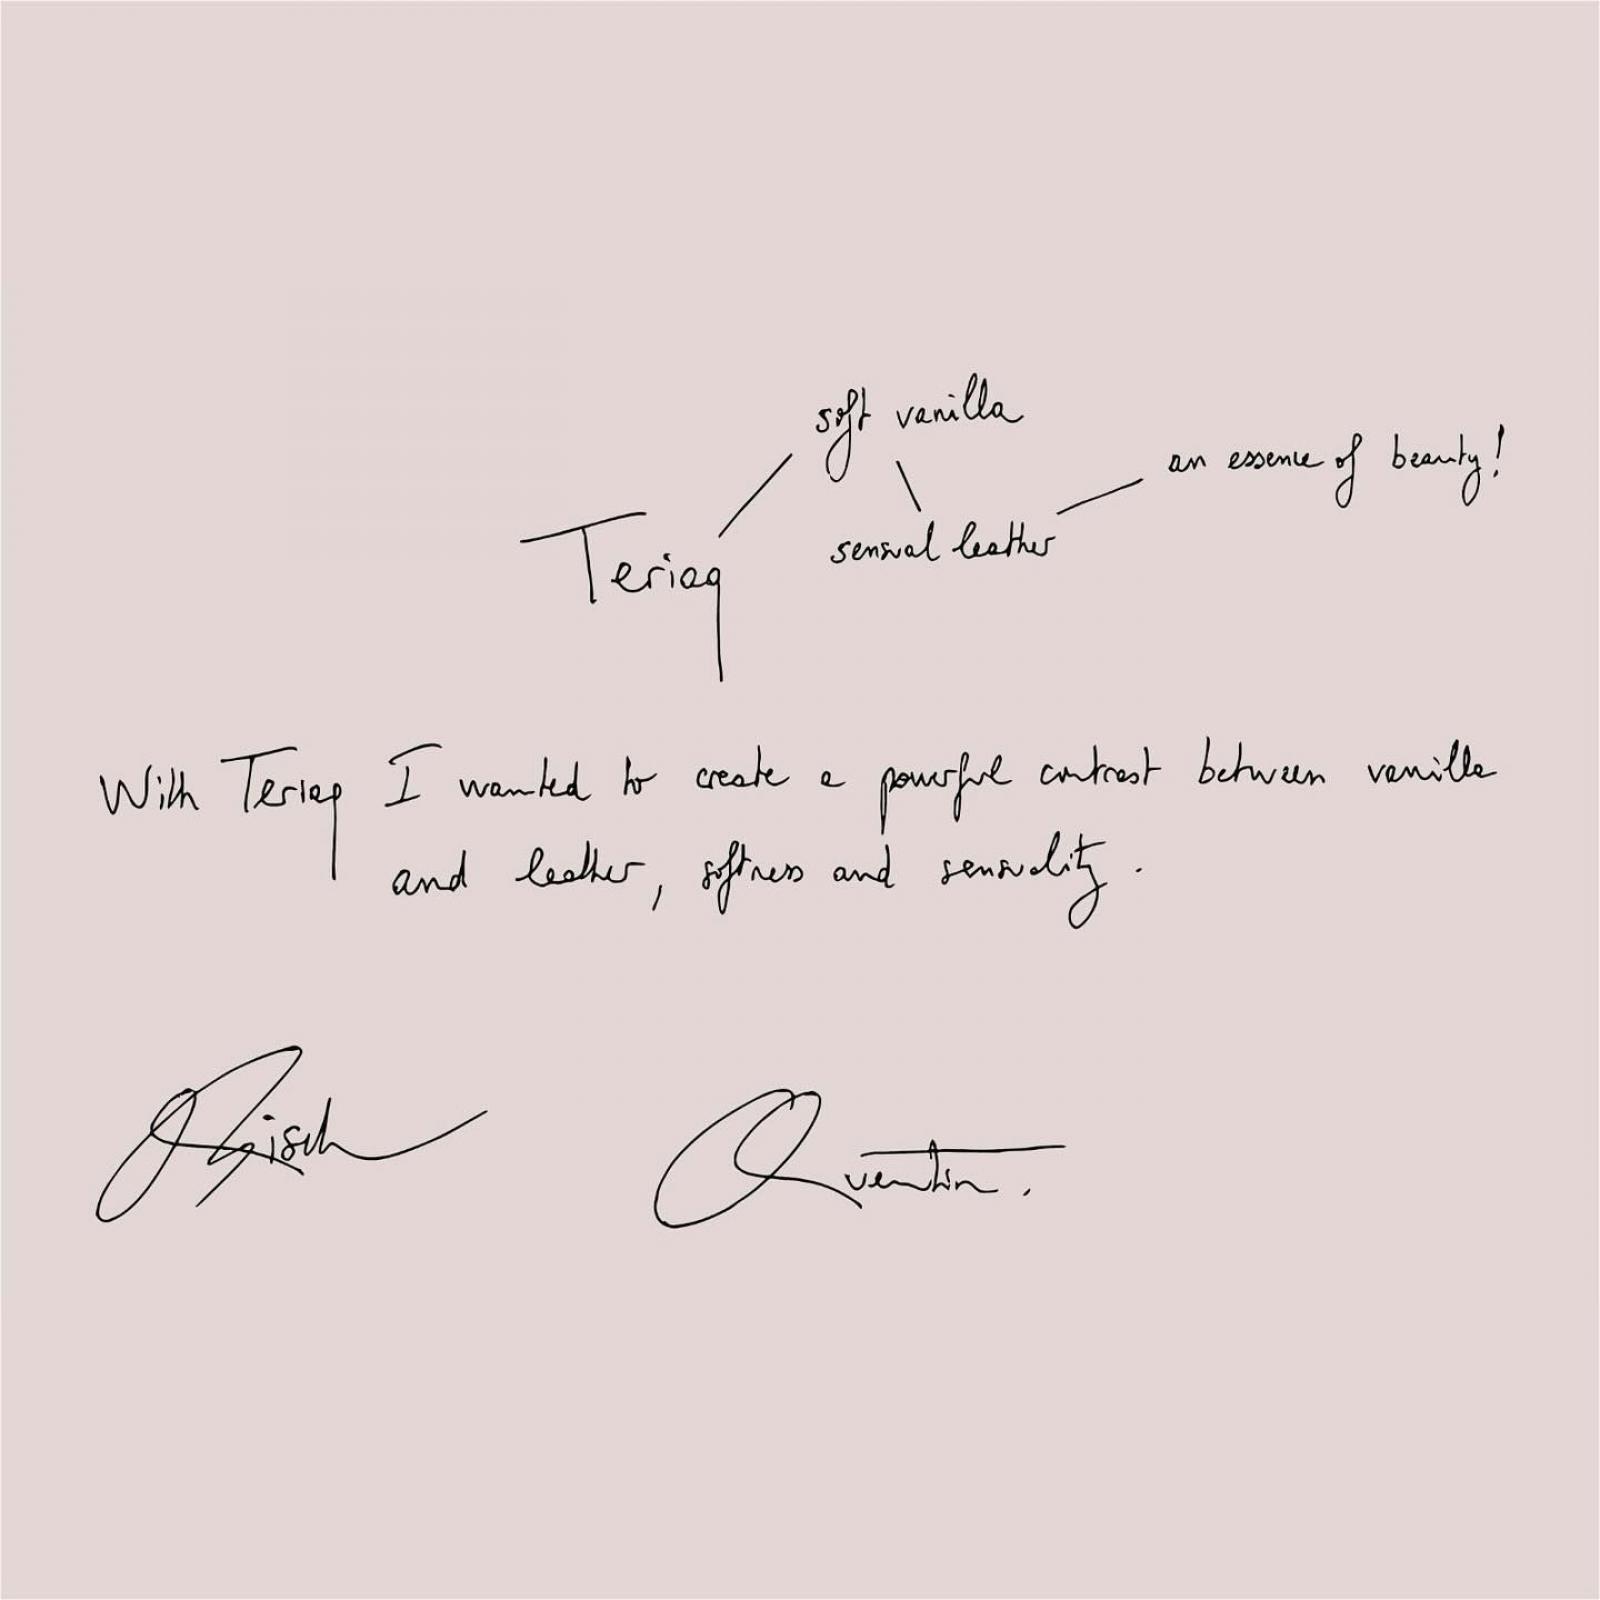 soft vanilla
an essence of beauty!
Teriaq
sensual leather
With Teriaq I wanted to create a powerful contrast between vanilla
and leather, softness and sensuality.
Bisch
Quentin.